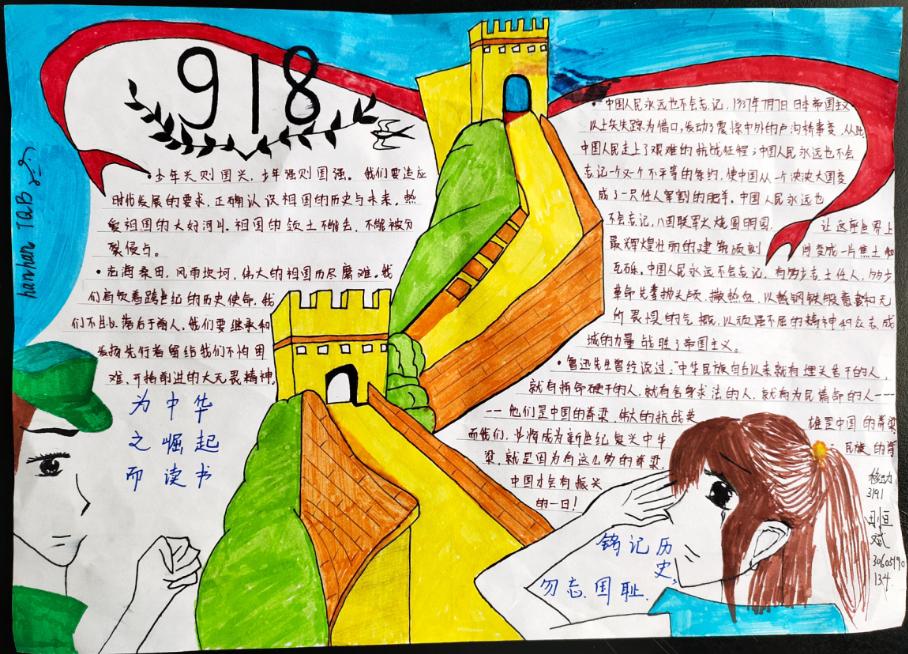 918
hanhan
·少年兴则国兴，少年强则国强。我们要适应
时代发展的要求，正确认识祖国的历史与未来，热
爱祖国的大好河山，祖国的领土不能丢，不能被分
裂侵占。
·沧海桑田，风雨坎坷，伟大的祖国历尽磨难。我
们肩负着跨世纪的历史使命，我
们不甘心落后于前人，我们要继承和
发扬先行者留给我们不怕困
难，开拓前进的大无畏精神，
为中华
之崛起
而读书
·中国人民永远也不会忘记，1937年7月7日日本帝国主义
以士兵失踪为借口，发动了震惊中外的卢沟桥事变，从此
中国人民走上了艰难的抗战征程；中国人民永远也不会
忘记一个又一个不平等的条约，使中国从一个泱泱大国变
成了一只任人宰割的肥羊，中国人民永远也
不会忘记，八国联军火烧圆明园，
让这座世界上
最辉煌壮丽的建筑顷刻
间变成一片焦土和
瓦砾。中国人民永远不会忘记，有多少志士仁人，多少
革命先辈抛头颅、撒热血，以
的气概，以顽强不屈的精神和众志成
城的力量战胜了帝国主义。
·鲁迅先生曾经说过，“中华民族自古以来就有埋头苦干的人，
就有拼命硬干的人，就有舍身求法的人，就有为民请命的人——
——他们是中国的脊梁，伟大的抗战英
雄是中国的脊梁
而我们，必将成为新世纪复兴中华
民族的脊
梁，就是因为有这么多的脊梁
中国才会有振兴
的一日！
铭记历
史，
勿忘国耻.
3191
30605190
134